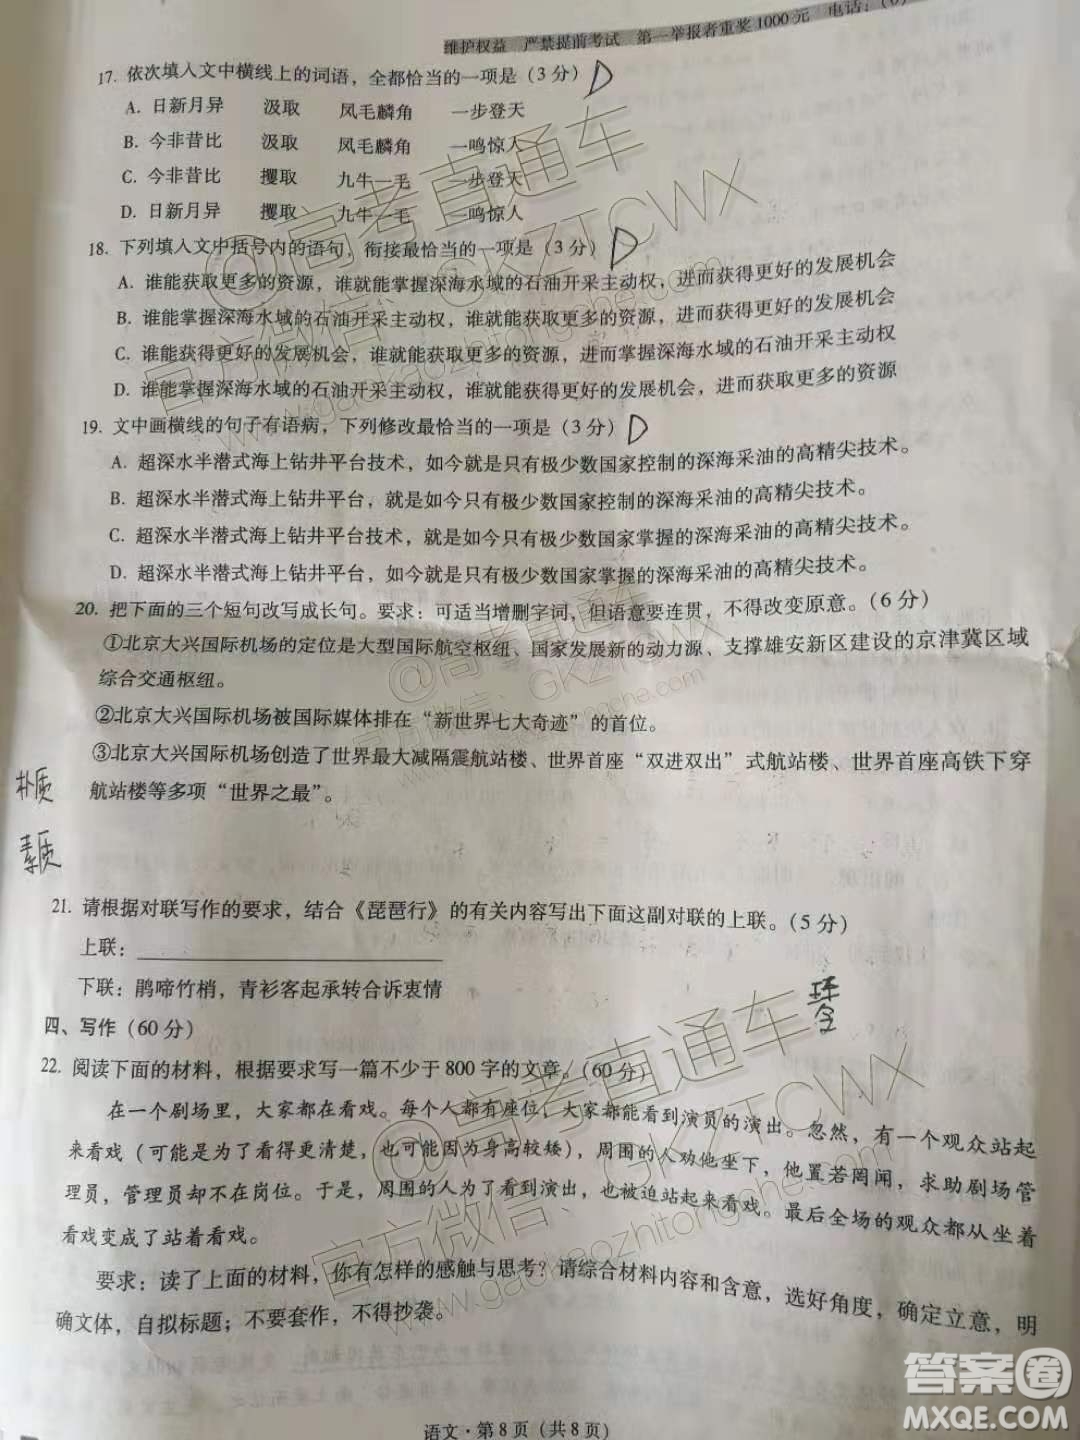 维护权益 严禁提前考试 第一举报者重奖1000元 电话:(0)
17. 依次填入文中横线上的词语，全都恰当的一项是(3分) D
A. 日新月异 汲取 凤毛麟角 一步登天
B. 今非昔比 汲取 凤毛麟角 一鸣惊人
C. 今非昔比 攫取 九牛一毛 一步登天
D. 日新月异 攫取 九牛一毛 一鸣惊人
18. 下列填入文中括号内的语句，衔接最恰当的一项是(3分) D
A. 谁能获取更多的资源，谁就能掌握深海水域的石油开采主动权，进而获得更好的发展机会
B. 谁能掌握深海水域的石油开采主动权，谁就能获取更多的资源，进而获得更好的发展机会
C. 谁能获得更好的发展机会，谁就能获取更多的资源，进而掌握深海水域的石油开采主动权
D. 谁能掌握深海水域的石油开采主动权，谁就能获得更好的发展机会，进而获取更多的资源
19. 文中画横线的句子有语病，下列修改最恰当的一项是(3分) D
A. 超深水半潜式海上钻井平台技术，如今就是只有极少数国家控制的深海采油的高精尖技术。
B. 超深水半潜式海上钻井平台，就是如今只有极少数国家控制的深海采油的高精尖技术。
C. 超深水半潜式海上钻井平台技术，就是如今只有极少数国家掌握的深海采油的高精尖技术。
D. 超深水半潜式海上钻井平台，如今就是只有极少数国家掌握的深海采油的高精尖技术。
20. 把下面的三个短句改写成长句。要求：可适当增删字词，但语意要连贯，不得改变原意。(6分)
①北京大兴国际机场的定位是大型国际航空枢纽、国家发展新的动力源、支撑雄安新区建设的京津冀区域
综合交通枢纽。
②北京大兴国际机场被国际媒体排在“新世界七大奇迹”的首位。
③北京大兴国际机场创造了世界最大减隔震航站楼、世界首座“双进双出”式航站楼、世界首座高铁下穿
航站楼等多项“世界之最”。
朴质
素质
21. 请根据对联写作的要求，结合《琵琶行》的有关内容写出下面这副对联的上联。(5分)
上联：
下联：鹃啼竹梢，青衫客起承转合诉衷情
四、写作(60分)
22. 阅读下面的材料，根据要求写一篇不少于800字的文章。(60分)
在一个剧场里，大家都在看戏。每个人都有座位，大家都能看到演员的演出。忽然，有一个观众站起
来看戏(可能是为了看得更清楚，也可能因为身高较矮)，周围的人劝他坐下，他置若罔闻，求助剧场管
理员，管理员却不在岗位。于是，周围的人为了看到演出，也被迫站起来看戏。最后全场的观众都从坐着
看戏变成了站着看戏。
要求：读了上面的材料，你有怎样的感触与思考？请综合材料内容和含意，选好角度，确定立意，明
确文体，自拟标题；不要套作，不得抄袭。
语文·第8页(共8页)
@高考直通车
官方微信：GKZTCWX
www.gaozhitongche.com
@高考直通车
官方微信：GKZTCWX
www.gaozhitongche.com
答案圈
MXQE.COM